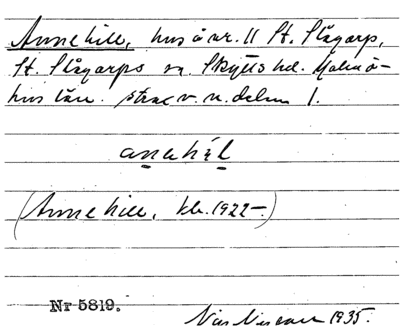 Annehill, hus å nr. 11 St. Slågarp,
St. Slågarps sn. Skytts hd. Malmö-
hus län. strax v. n. delen 1.
anahil
(Annehill, kb. 1922-)
Nr 5819.
Nils 1935.